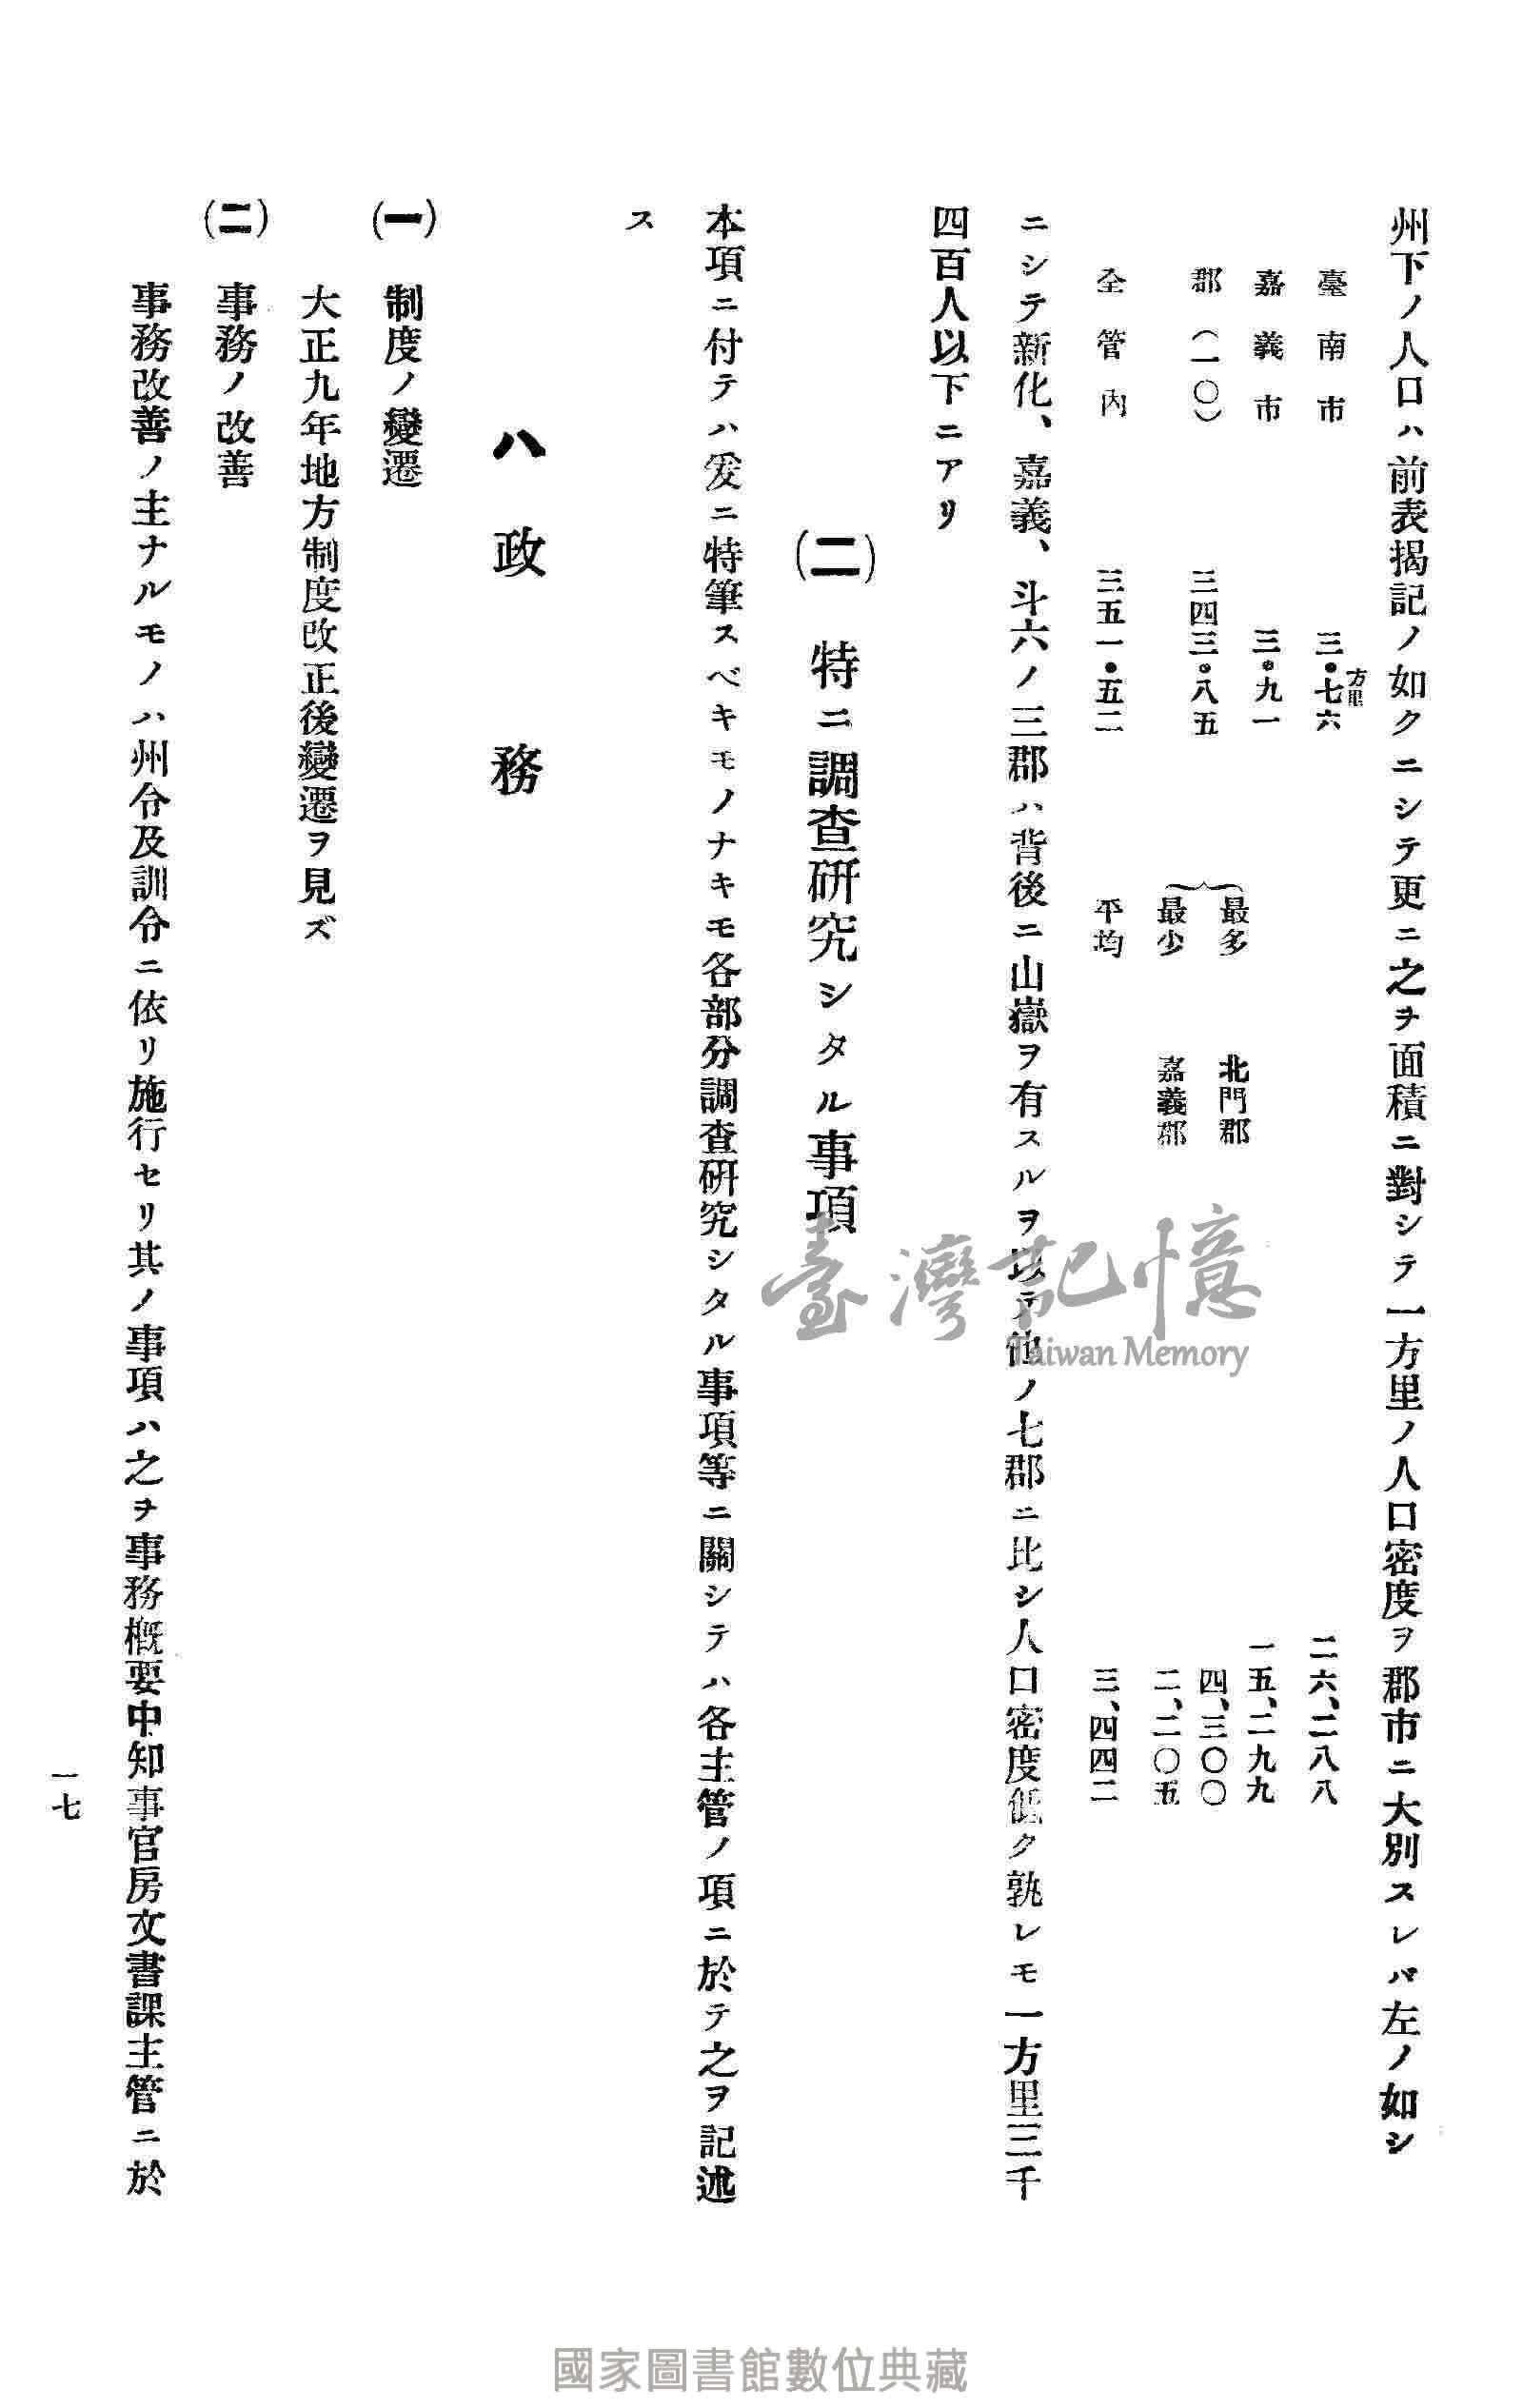 州下ノ人口ハ前表揭記ノ如クニシテ更ニ之ヲ面積ニ對シテ一方里ノ人口密度ヲ郡市ニ大別スレバ左ノ如シ
臺南市 三・七六方里 二六、二八八
嘉義市 三・九一 一五、二九九
郡（一〇） 三四三・八五
最多 北門郡 四、三〇〇
最少 嘉義郡 二、二〇五
全管內 三五一・五二 平均 三、四四二
ニシテ新化、嘉義、斗六ノ三郡ハ背後ニ山嶽ヲ有スルヲ以テ他ノ七郡ニ比シ人口密度低ク孰レモ一方里三千
四百人以下ニアリ
(二) 特ニ調查硏究シタル事項
本項ニ付テハ爰ニ特筆スベキモノナキモ各部分調查硏究シタル事項等ニ關シテハ各主管ノ項ニ於テ之ヲ記述
ス
ハ 政務
(一) 制度ノ變遷
大正九年地方制度改正後變遷ヲ見ズ
(二) 事務ノ改善
事務改善ノ主ナルモノハ州令及訓令ニ依リ施行セリ其ノ事項ハ之ヲ事務概要中知事官房文書課主管ニ於
一七
臺灣記憶
Taiwan Memory
國家圖書館數位典藏